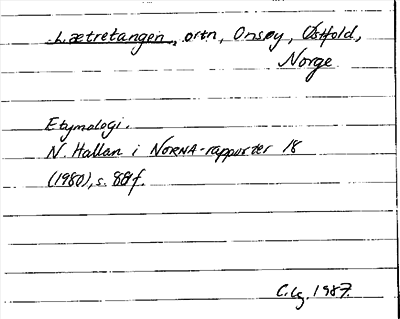 Lætretangen, ortn, Onsøy, Østfold,
Norge
Etymologi.
N. Hallan i NORNA-rapporter 18
(1980), s. 88f.
C.Lg. 1987.